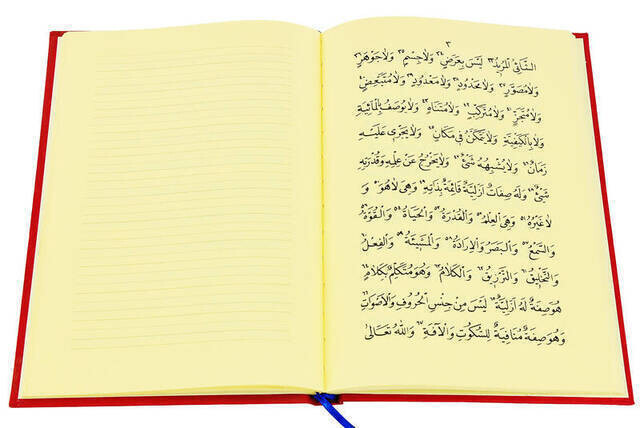 ٣
الشَّائِي الْمُرِيدُ لَيْسَ بِعَرَضٍ وَلَا جِسْمٍ وَلَا جَوْهَرٍ
وَلَا مُصَوَّرٍ وَلَا مَحْدُودٍ وَلَا مَعْدُودٍ وَلَا مُتَبَعِّضٍ
وَلَا مُتَجَزٍّ وَلَا مُتَرَكِّبٍ وَلَا مُتَنَاهٍ وَلَا يُوصَفُ بِالْمَائِيَّةِ
وَلَا بِالْكَيْفِيَّةِ وَلَا يَتَمَكَّنُ فِي مَكَانٍ وَلَا يَجْرِي عَلَيْهِ
زَمَانٌ وَلَا يُشْبِهُهُ شَيْءٌ وَلَا يَخْرُجُ عَنْ عِلْمِهِ وَقُدْرَتِهِ
شَيْءٌ وَلَهُ صِفَاتٌ أَزَلِيَّةٌ قَائِمَةٌ بِذَاتِهِ وَهِيَ لَا هُوَ وَ
لَا غَيْرُهُ وَهِيَ الْعِلْمُ وَالْقُدْرَةُ وَالْحَيَاةُ وَالْقُوَّةُ
وَالسَّمْعُ وَالْبَصَرُ وَالْإِرَادَةُ وَالْمَشِيئَةُ وَالْفِعْلُ
وَالتَّخْلِيقُ وَالتَّرْزِيقُ وَالْكَلَامُ وَهُوَ مُتَكَلِّمٌ بِكَلَامٍ
هُوَ صِفَةٌ لَهُ أَزَلِيَّةٌ لَيْسَ مِنْ جِنْسِ الْحُرُوفِ وَالْأَصْوَاتِ
وَهُوَ صِفَةٌ مُنَافِيَةٌ لِلسُّكُوتِ وَالْآفَةِ وَاللهُ تَعَالَى